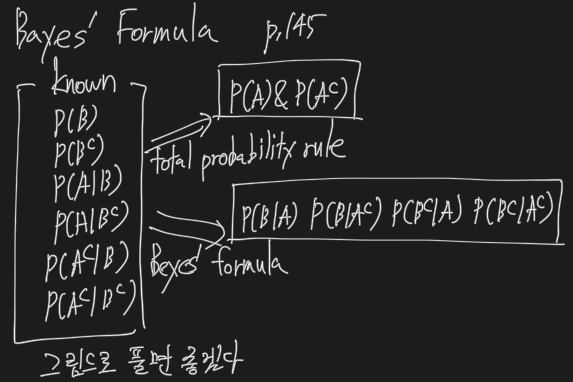 Bayes' Formula p.145
known
P(B)
P(Bᶜ)
P(A|B)
P(A|Bᶜ)
P(Aᶜ|B)
P(Aᶜ|Bᶜ)
P(A)&P(Aᶜ)
total probability rule
P(B|A) P(B|Aᶜ) P(Bᶜ|A) P(Bᶜ|Aᶜ)
Bayes' formula
그림으로 풀면 좋겠다